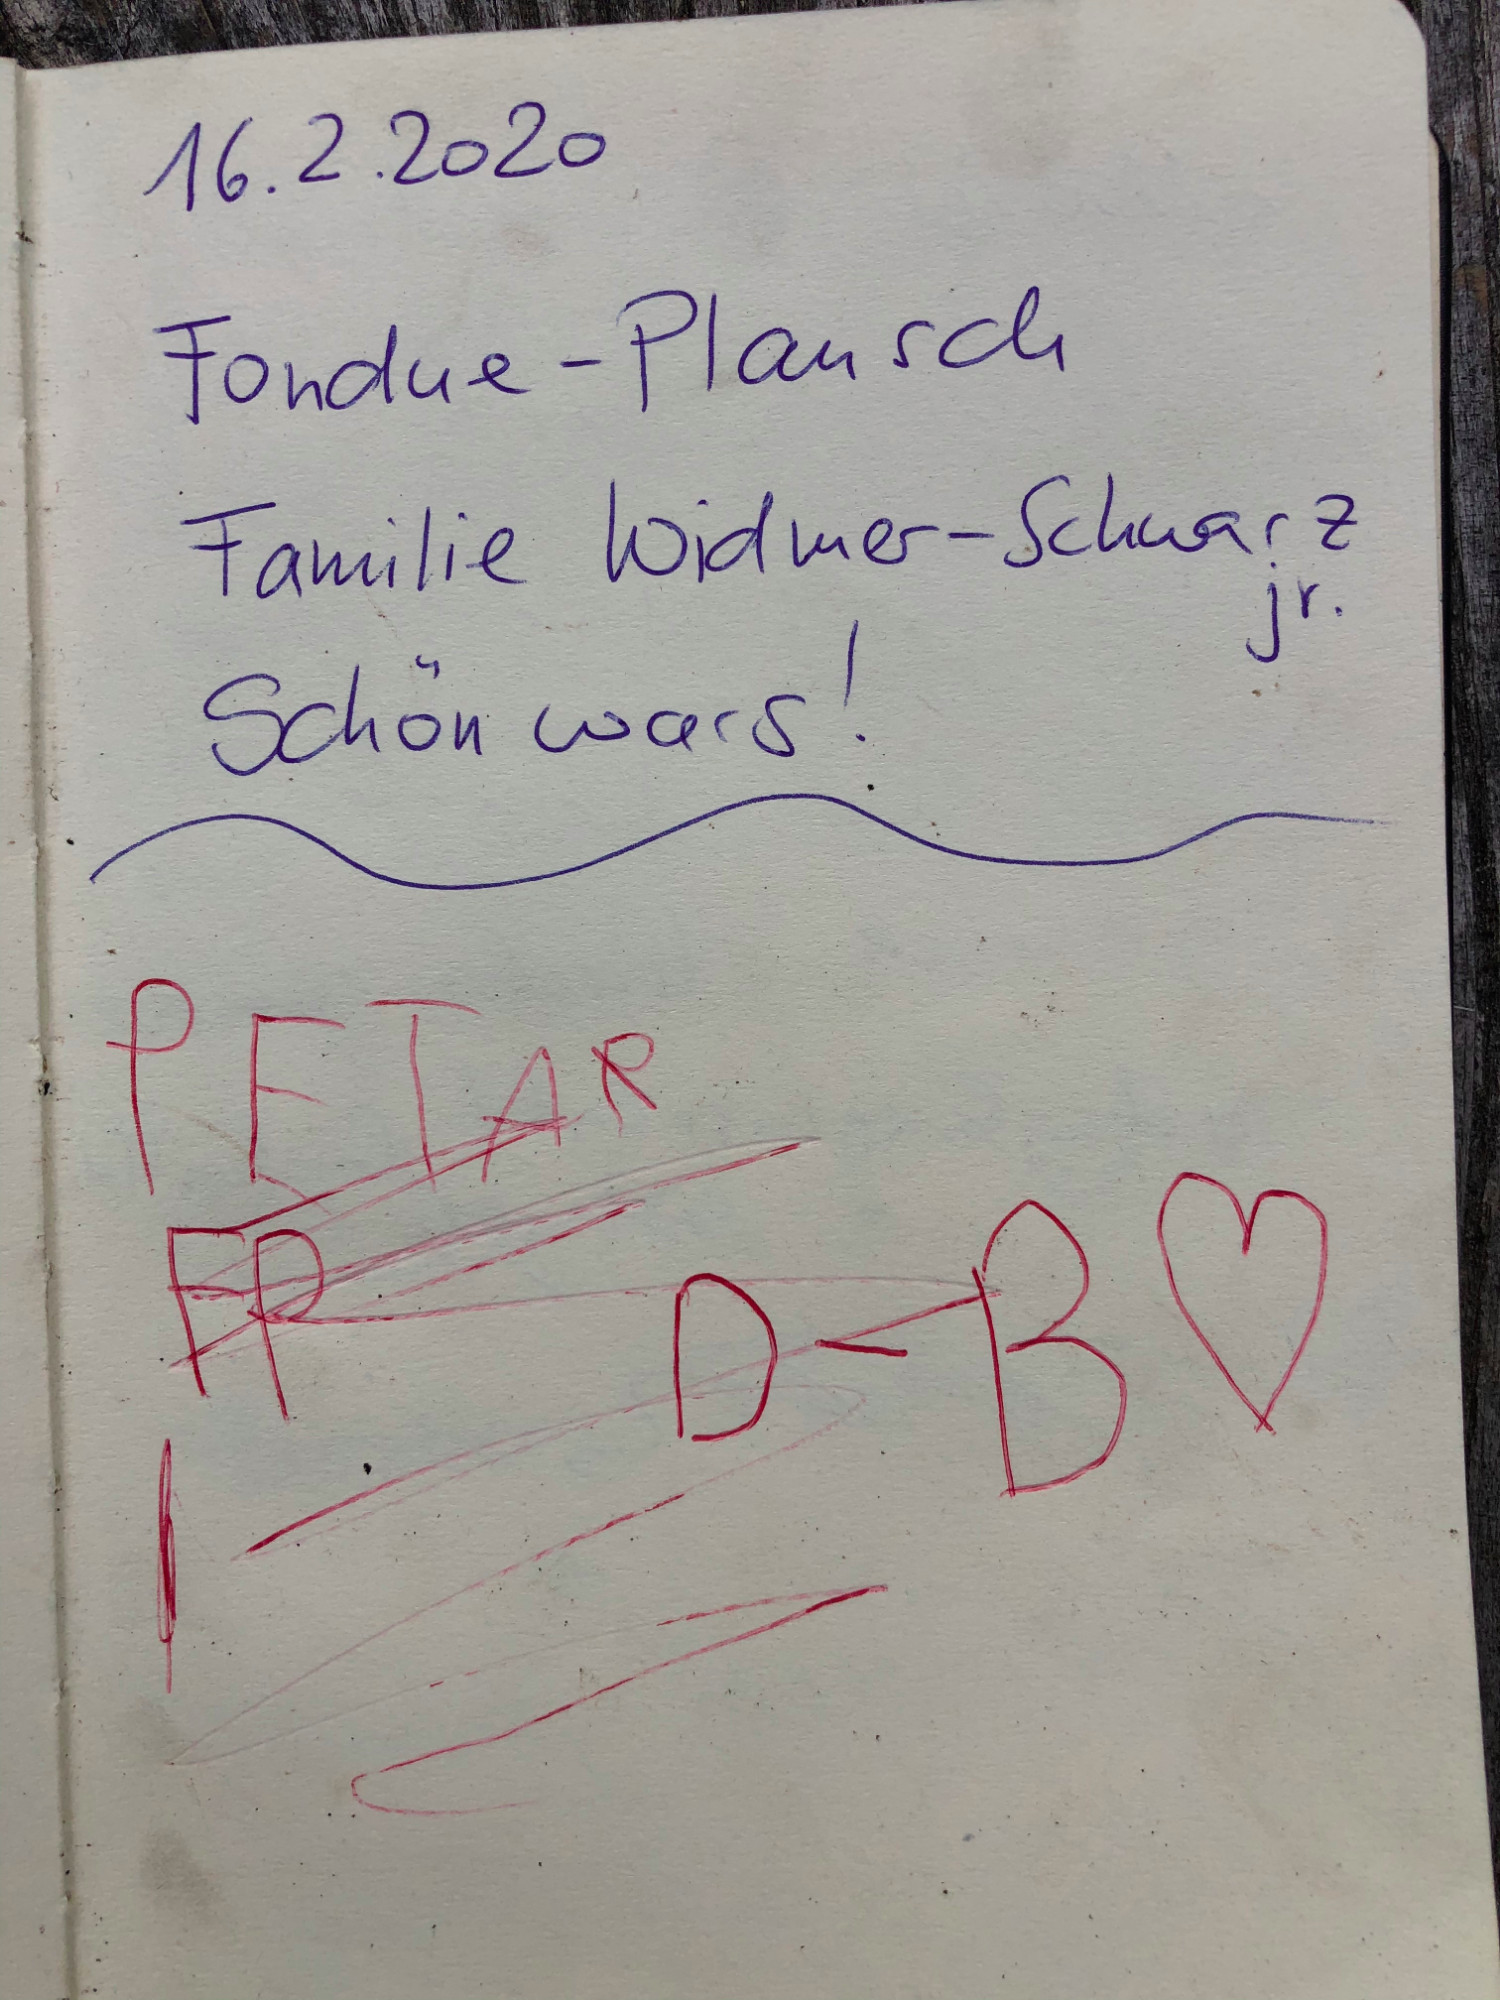 16.2.2020
Fondue-Plausch
Familie Widmer-Schwarz
jr.
Schön wars!
PETAR
FP
D-B